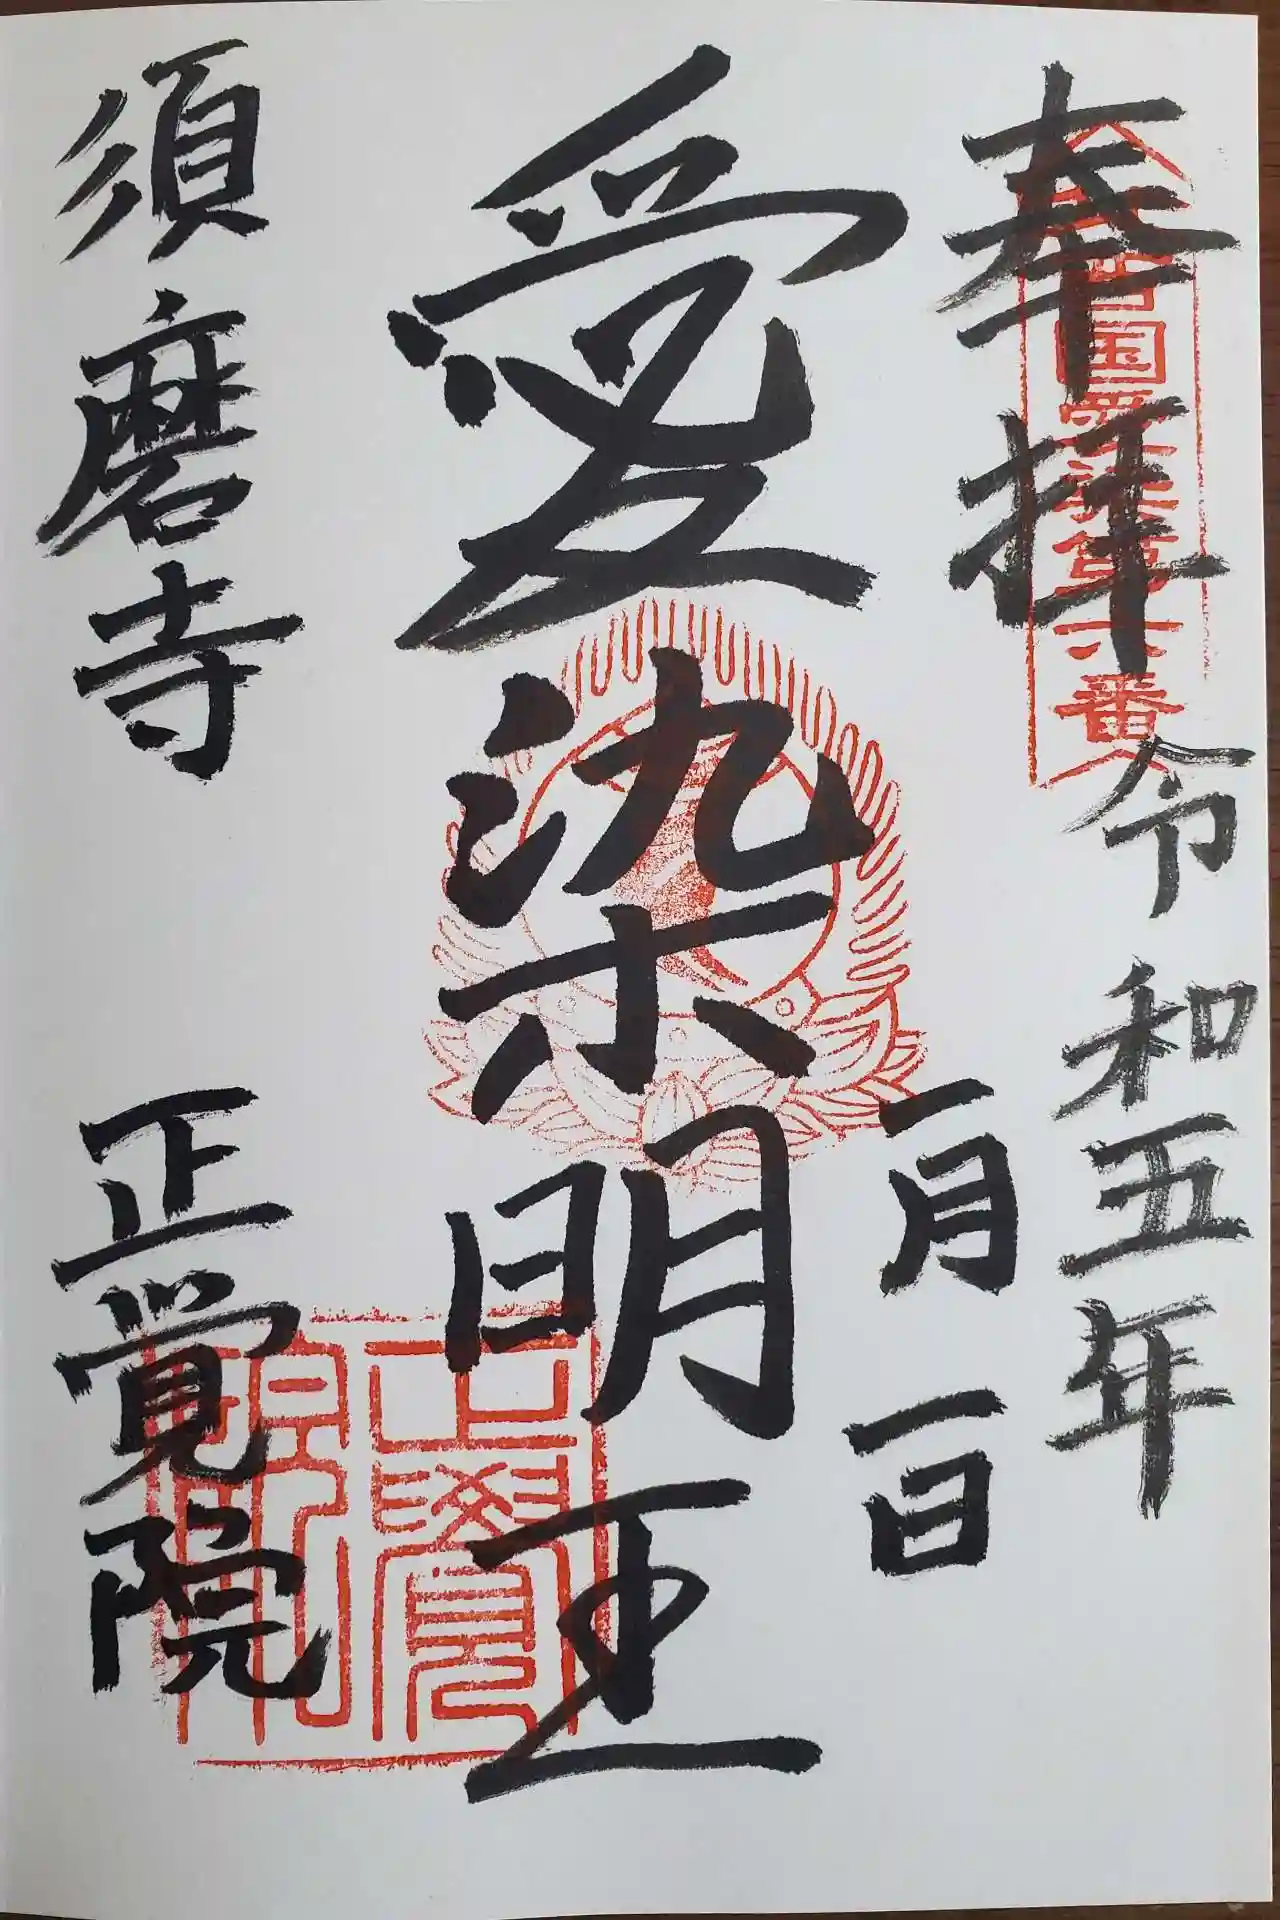 奉拝
西国愛染第六番
令和五年
一月一日
愛染明王
須磨寺 正覚院
正覚院印